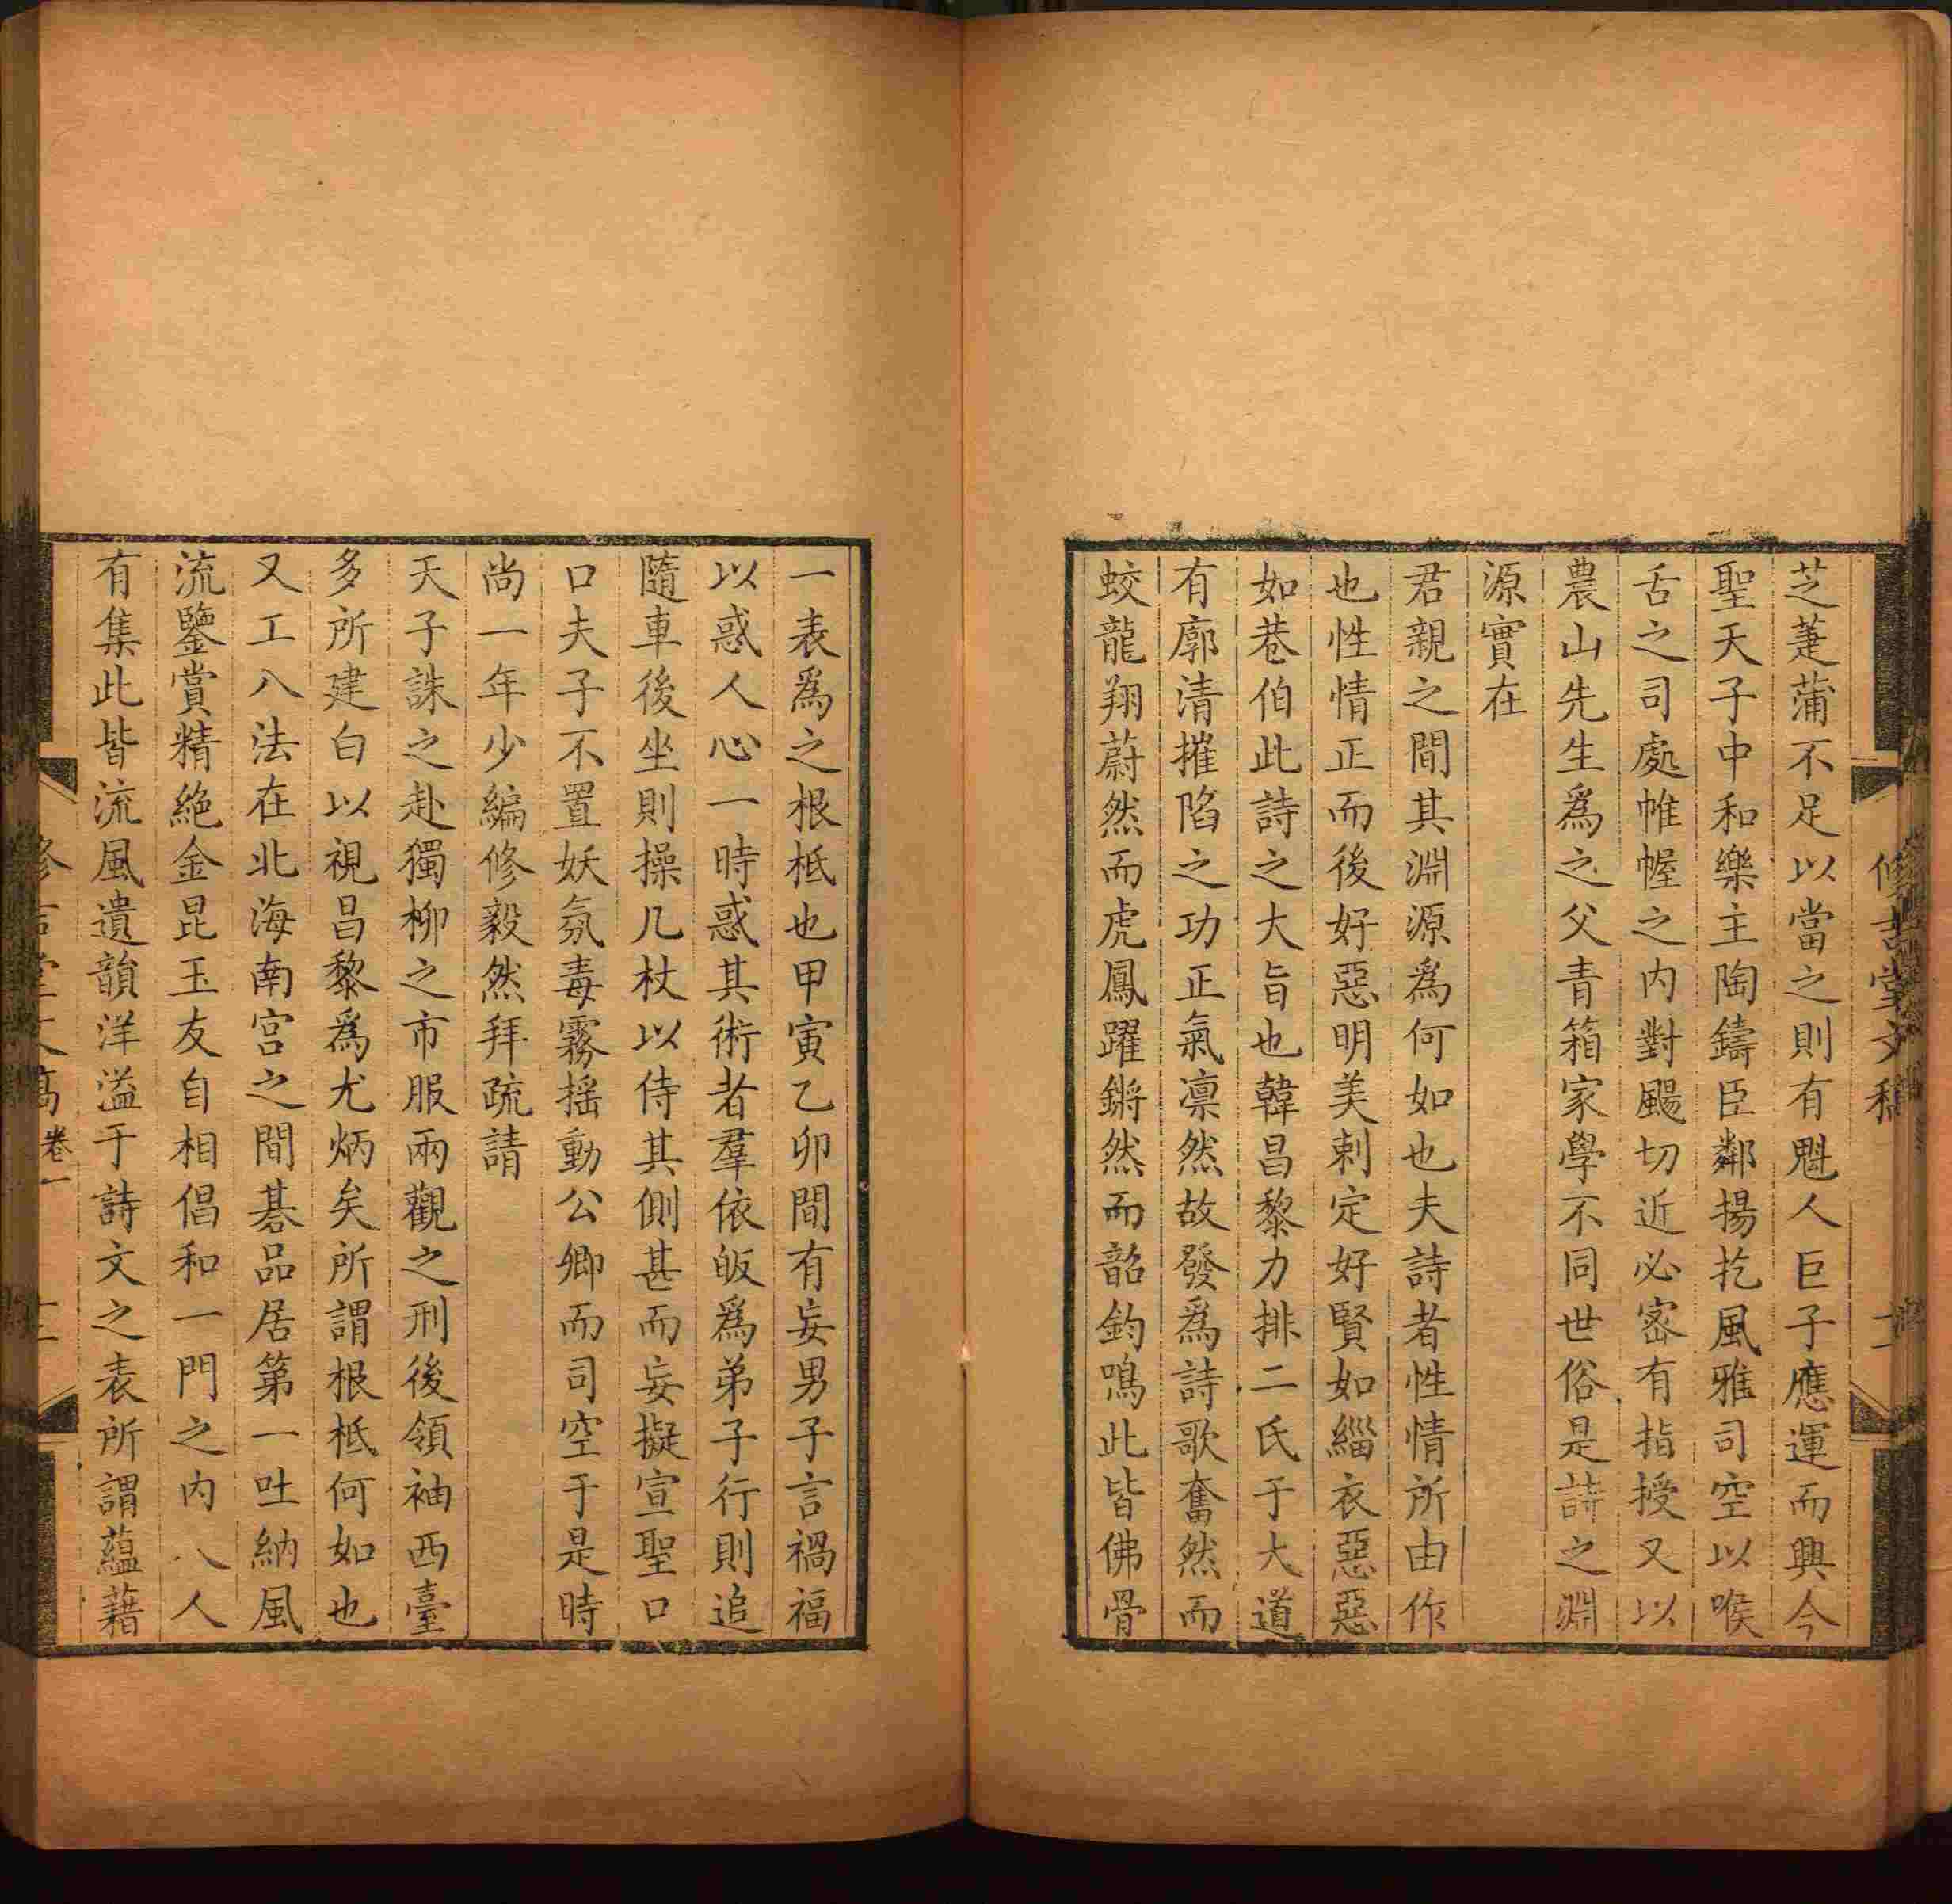 修吉堂文稿
芝萐蒲不足以當之則有魁人巨子應運而興今
聖天子中和樂主陶鑄臣鄰揚扢風雅司空以喉
舌之司處帷幄之内對颺切近必宻有指授又以
農山先生爲之父青箱家學不同世俗是詩之淵
源實在
君親之間其淵源爲何如也夫詩者性情所由作
也性情正而後好惡明美刺定好賢如緇衣惡惡
如巷伯此詩之大旨也韓昌黎力排二氏于大道
有廓清摧陷之功正氣凛然故發爲詩歌奮然而
蛟龍翔蔚然而虎鳳躍鏘然而韶鈞鳴此皆佛骨
一表爲之根柢也甲寅乙卯間有妄男子言禍福
以惑人心一時惑其術者羣依皈爲弟子行則追
隨車後坐則操几杖以侍其側甚而妄擬宣聖口
口夫子不置妖氛毒霧揺動公卿而司空于是時
尚一年少編修毅然拜疏請
天子誅之赴獨柳之市服兩觀之刑後領袖西臺
多所建白以視昌黎爲尤炳矣所謂根柢何如也
又工八法在北海南宫之間碁品居第一吐納風
流鑒賞精絶金昆玉友自相倡和一門之内人人
有集此皆流風遺韻洋溢于詩文之表所謂蘊藉
卷一